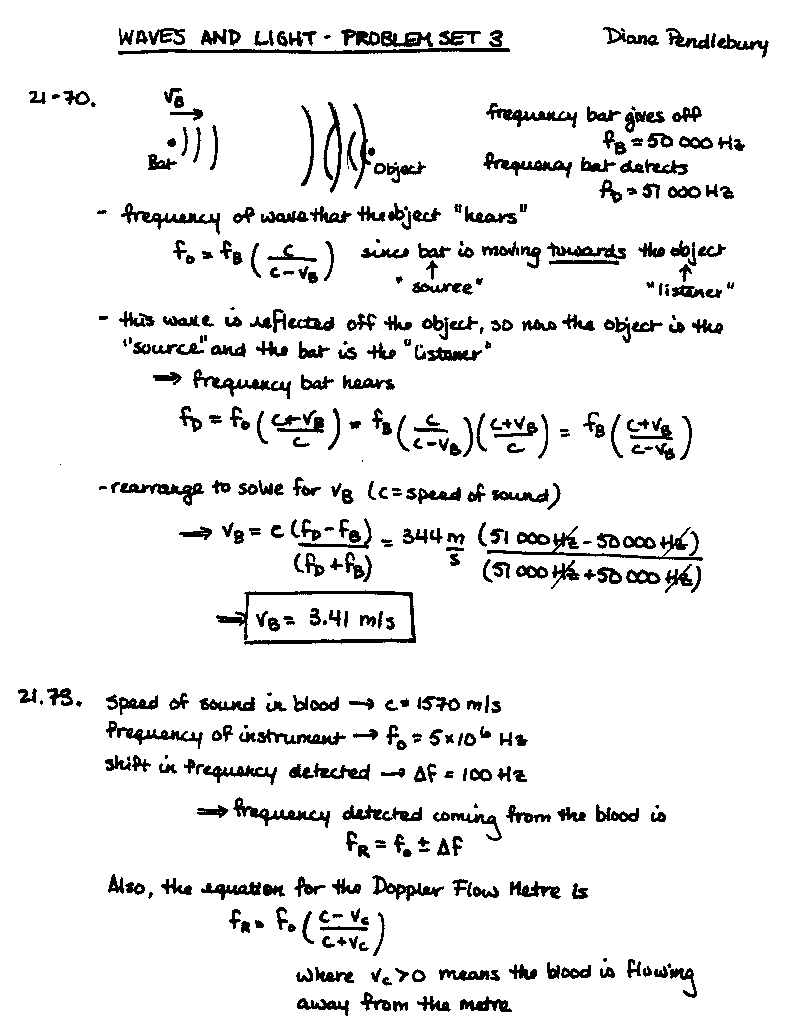 WAVES AND LIGHT - PROBLEM SET 3 Diana Pendlebury
21-70.
V_B
Bat Object
frequency bat gives off
f_B = 50 000 Hz
frequency bat detects
f_D = 51 000 Hz
- frequency of wave that the object "hears"
f_o = f_B (c / (c - V_B)) since bat is moving towards the object
"source" "listener"
- this wave is reflected off the object, so now the object is the
"source" and the bat is the "listener"
⇒ frequency bat hears
f_D = f_o ((c + V_B) / c) = f_B (c / (c - V_B)) ((c + V_B) / c) = f_B ((c + V_B) / (c - V_B))
- rearrange to solve for V_B (c = speed of sound)
⇒ V_B = c (f_D - f_B) / (f_D + f_B) = 344 m/s (51 000 Hz - 50 000 Hz) / (51 000 Hz + 50 000 Hz)
⇒ V_B = 3.41 m/s
21.73. Speed of sound in blood → c = 1570 m/s
Frequency of instrument → f_o = 5×10^6 Hz
shift in frequency detected → Δf = 100 Hz
⇒ frequency detected coming from the blood is
f_R = f_o ± Δf
Also, the equation for the Doppler Flow Metre is
f_R = f_o ((c - V_c) / (c + V_c))
where V_c > 0 means the blood is flowing
away from the metre